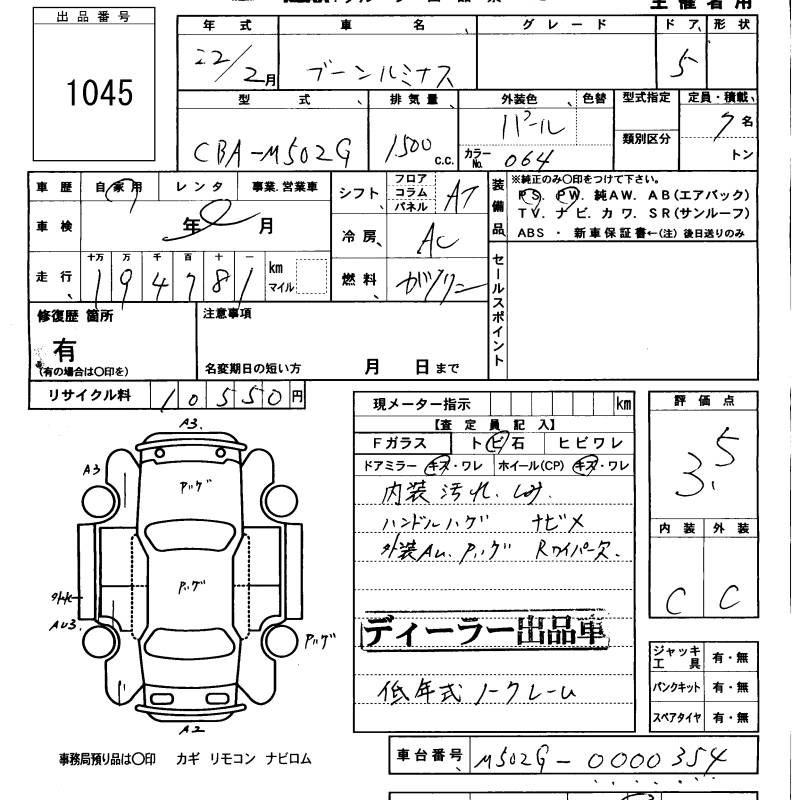 主催者用
出品番号
1045
年式 車名 グレード ドア 形状
22/2月 ブーンルミナス 5
型式 排気量 外装色 色替 型式指定 定員・積載
CBA-M502G 1500 c.c. パール 類別区分 7名
カラーNo. 064 トン
車歴 自家用 レンタ 事業.営業車
車検 年 月
走行 十万 万 千 百 十 一
194781 km マイル
シフト フロア コラム パネル AT
冷房 AC
燃料 ガソリン
装備品
※純正のみ〇印をつけて下さい。
PS. PW. 純AW. AB(エアバック)
TV. ナビ. カワ. SR(サンルーフ)
ABS ・ 新車保証書←(注)後日送りのみ
セールスポイント
修復歴箇所
有
(有の場合は〇印を)
注意事項
名変期日の短い方 月 日まで
リサイクル料 10550円
現メーター指示 km
【査定員記入】
Fガラス トビ石 ヒビワレ
ドアミラー キズ・ワレ ホイール(CP) キズ・ワレ
内装 汚れ.
ハンドルハゲ ナビメ
外装AU. Rワイパー欠.
ディーラー出品車
低年式 ノークレーム
評価点
3.5
内装 外装
C C
ジャッキ工具 有・無
パンクキット 有・無
スペアタイヤ 有・無
A3.
A3
AU3.
A2
事務局預り品は〇印 カギ リモコン ナビロム
車台番号 M502G-0000354